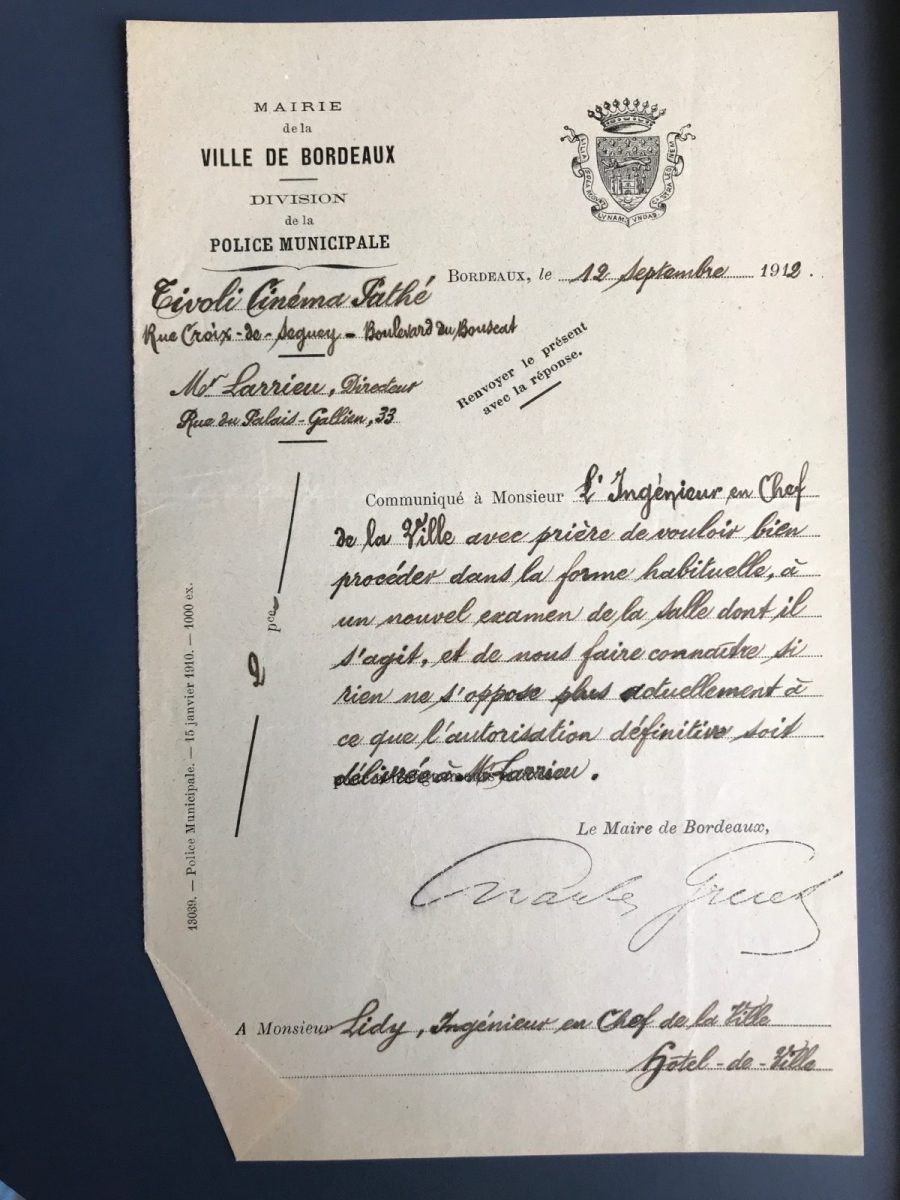 MAIRIE
de la
VILLE DE BORDEAUX
DIVISION
de la
POLICE MUNICIPALE
LILIA SOLA REGUNT LVNAM VNDAS CASTRA LEONEM
BORDEAUX, le 12 septembre 1912.
Tivoli Cinéma Pathé
Rue Croix-de-Seguey - Boulevard du Bouscat
Mr Larrieu, Directeur
Rue du Palais-Gallien, 33
Renvoyer le présent
avec la réponse.
2 pces
Communiqué à Monsieur L'Ingénieur en Chef
de la Ville avec prière de vouloir bien
procéder dans la forme habituelle, à
un nouvel examen de la salle dont il
s'agit, et de nous faire connaître si
rien ne s'oppose plus actuellement à
ce que l'autorisation définitive soit
délivrée à Mr Larrieu.
Le Maire de Bordeaux,
Charles Gruet
A Monsieur Lidy, Ingénieur en Chef de la Ville
Hôtel-de-Ville
13039. — Police Municipale. — 15 janvier 1910. — 1000 ex.